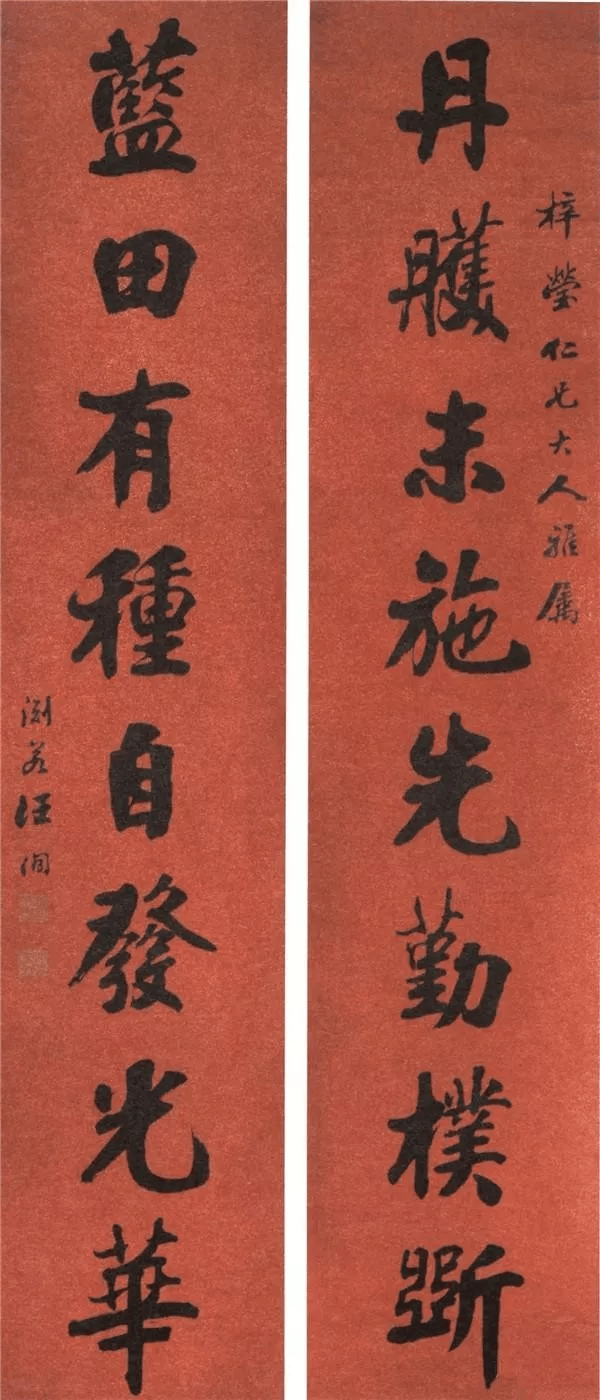 梓瑩仁兄大人雅属
丹雘未施先勤樸斲
藍田有種自發光華
渊若汪洵